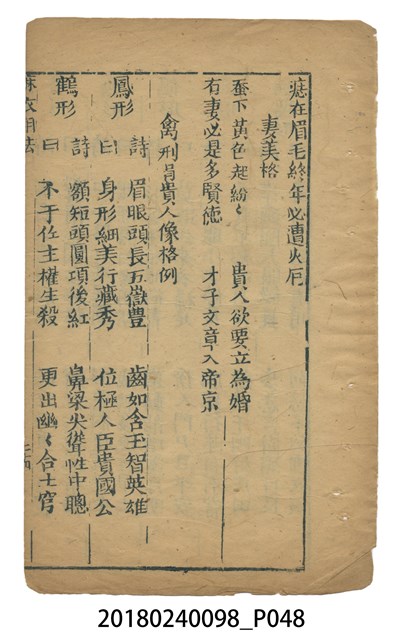 痣在眉毛終年必遭火厄
妻美格
蚕下黃色起紛〻　貴人欲要立為婚
有妻必是多賢德　才子文章入帝京
禽形肖貴人像格例
鳳形　詩曰　眉眼頭長五嶽豊　齒如含玉智英雄
身形細美行藏秀　位極人臣貴國公
鶴形　詩曰　額短頭圓項後紅　鼻梁尖聳性中聰
不于任主權生殺　更出幽〻合土宮
麻衣相法
20180240098_P048